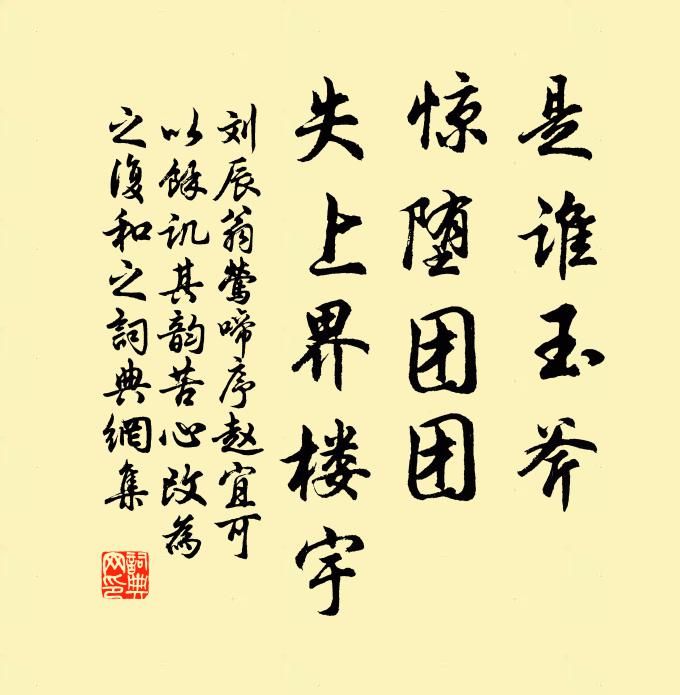 是谁玉斧
惊堕团团
失上界楼宇
刘辰翁莺啼序赵宜可
以馀讥其韵苦心改為
之復和之詞典網集
詞典網印